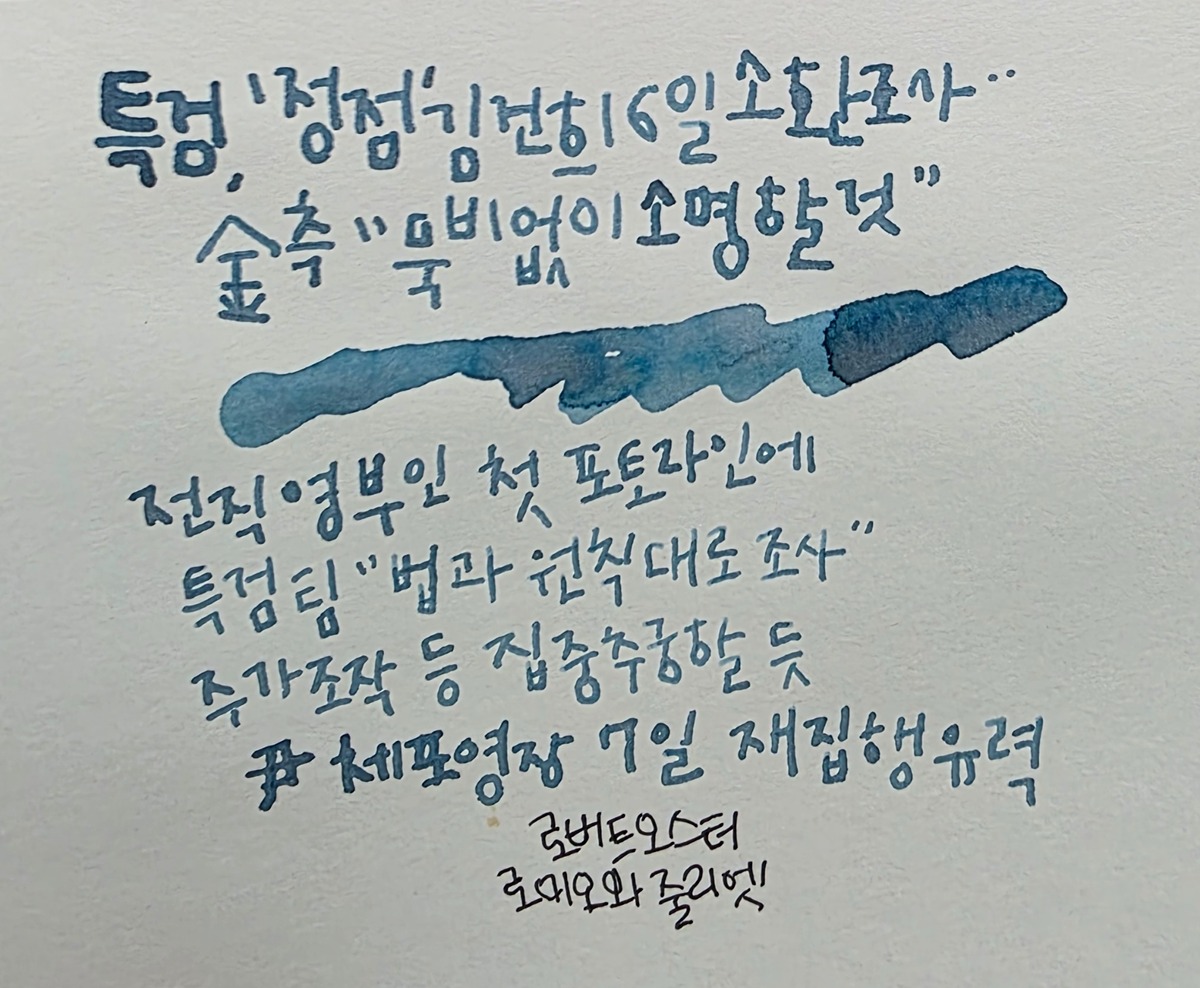 특검, '정점' 김건희 6일 소환조사··
金측 "묵비없이 소명할 것"
전직 영부인 첫 포토라인에
특검팀 "법과 원칙대로 조사"
주가조작 등 집중추궁할 듯
尹 체포영장 7일 재집행유력
로버트오스터
로미오와 줄리엣